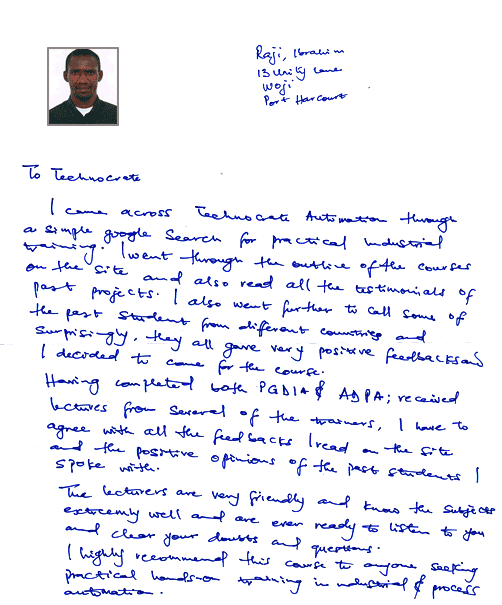 Raji, Ibrahim
13 Unity Lane
Woji
Port Harcourt
To Technocrate
I came across Technocrate Automation through
a simple google search for practical Industrial
training. I went through the outline of the courses
on the site and also read all the testimonials of
past projects. I also went further to call some of
the past student from different countries and
surprisingly, they all gave very positive feedbacks and
I decided to come for the course.
Having completed both PGDIA & ADPA; received
lectures from several of the trainers, I have to
agree with all the feedbacks I read on the site
and the positive opinions of the past students I
spoke with.
The lecturers are very friendly and know the subjects
extremely well and are ever ready to listen to you
and clear your doubts and questions.
I highly recommend this course to anyone seeking
practical hands-on training in industrial & process
automation.